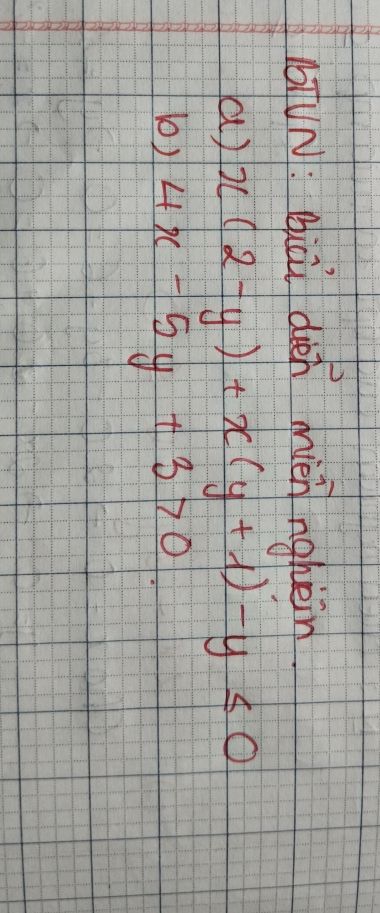 BTVN: biểu diễn miền nghiệm.
a) x(2-y) + x(y+1) - y ≤ 0
b) 4x - 5y + 3 > 0.